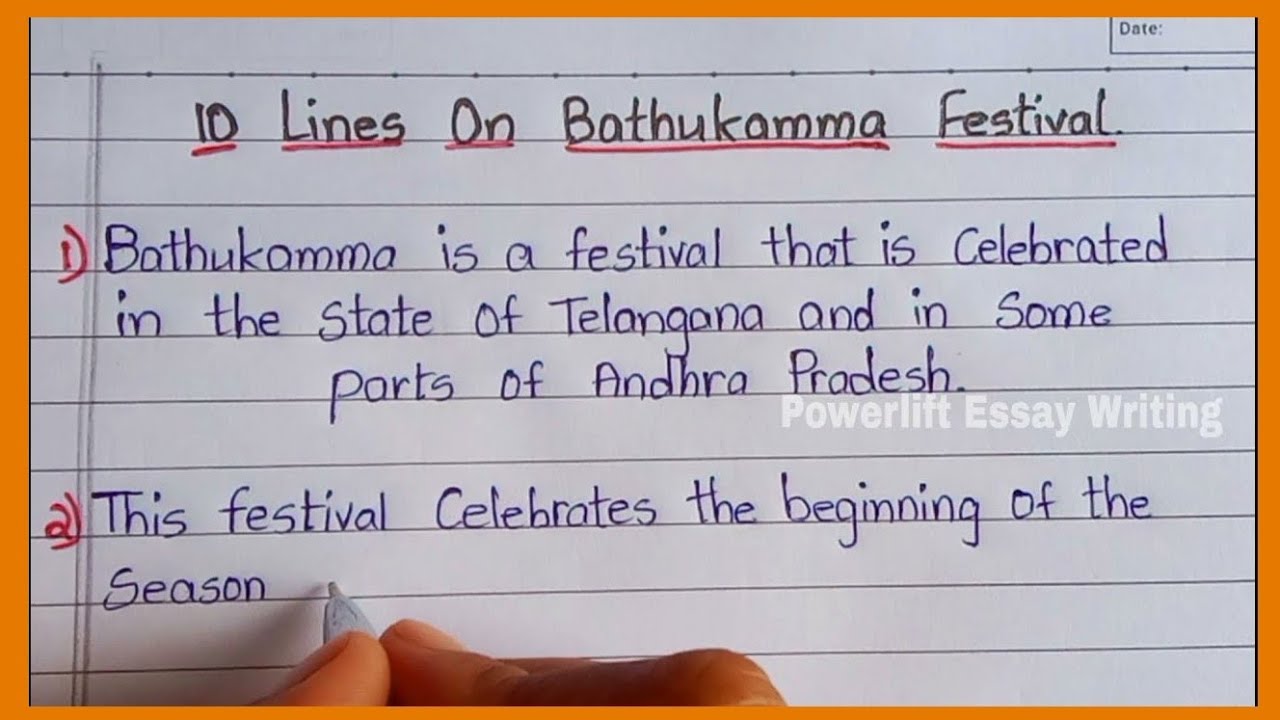 Date:
10 Lines On Bathukamma Festival.
1) Bathukamma is a festival that is Celebrated
in the State of Telangana and in Some
parts of Andhra Pradesh.
Powerlift Essay Writing
2) This festival Celebrates the beginning of the
Season